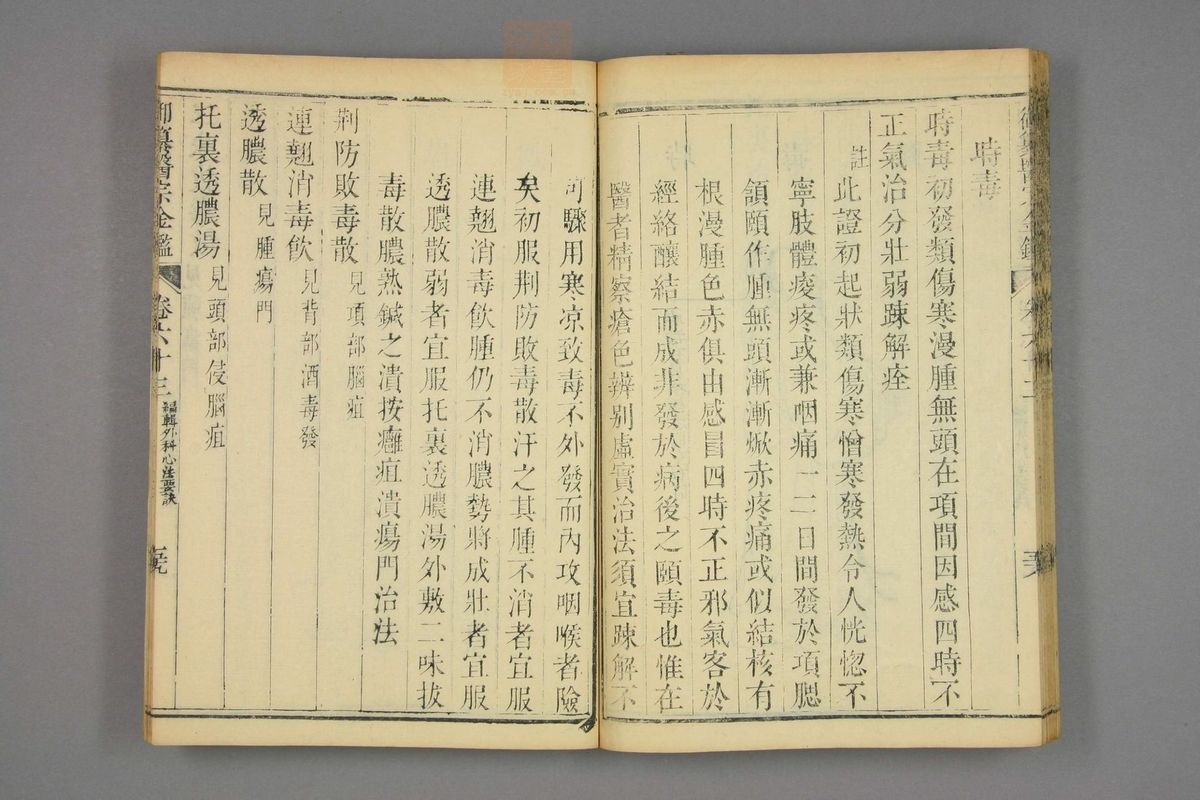 時毒
時毒初發類傷寒漫腫無頭在項間因感四時不
正氣治分壯弱踈解痊
註 此證初起狀類傷寒憎寒發熱令人恍惚不
寧肢體痠疼或兼咽痛一二日間發於項腮
頷頤作腫無頭漸漸焮赤疼痛或似結核有
根漫腫色赤俱由感冒四時不正邪氣客於
經絡釀結而成非發於病後之頤毒也惟在
醫者精察瘡色辨别虛實治法須宜踈解不
可驟用寒凉致毒不外發而內攻咽喉者險
矣初服荆防敗毒散汗之其腫不消者宜服
連翹消毒飲腫仍不消膿勢將成壯者宜服
透膿散弱者宜服托裏透膿湯外敷二味拔
毒散膿熟鍼之潰按癰疽潰瘍門治法
荆防敗毒散 見項部腦疽
連翹消毒飲 見背部酒毒發
透膿散 見腫瘍門
托裏透膿湯 見頭部侵腦疽
御纂醫宗金鑑 卷六十三 編輯外科心法要訣